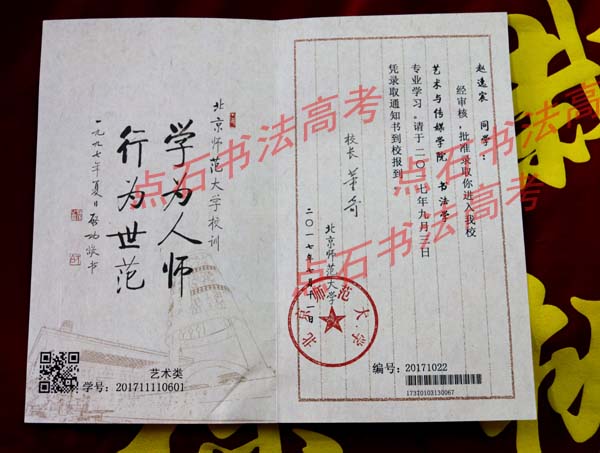 赵逸宸 同学：
经审核，批准录取你进入我校
艺术与传媒学院 书法学
专业学习。请于二〇一七年九月三日
凭录取通知书到校报到
校长 董奇
北京师范大学
二〇一七年七月十一日
北京师范大学
编号：20171022
17310103130067
北京师范大学校训
学为人师
行为世范
一九九七年夏日 启功敬书
艺术类
学号：201711110601
点石书法高考
点石书法高考
点石书法高考